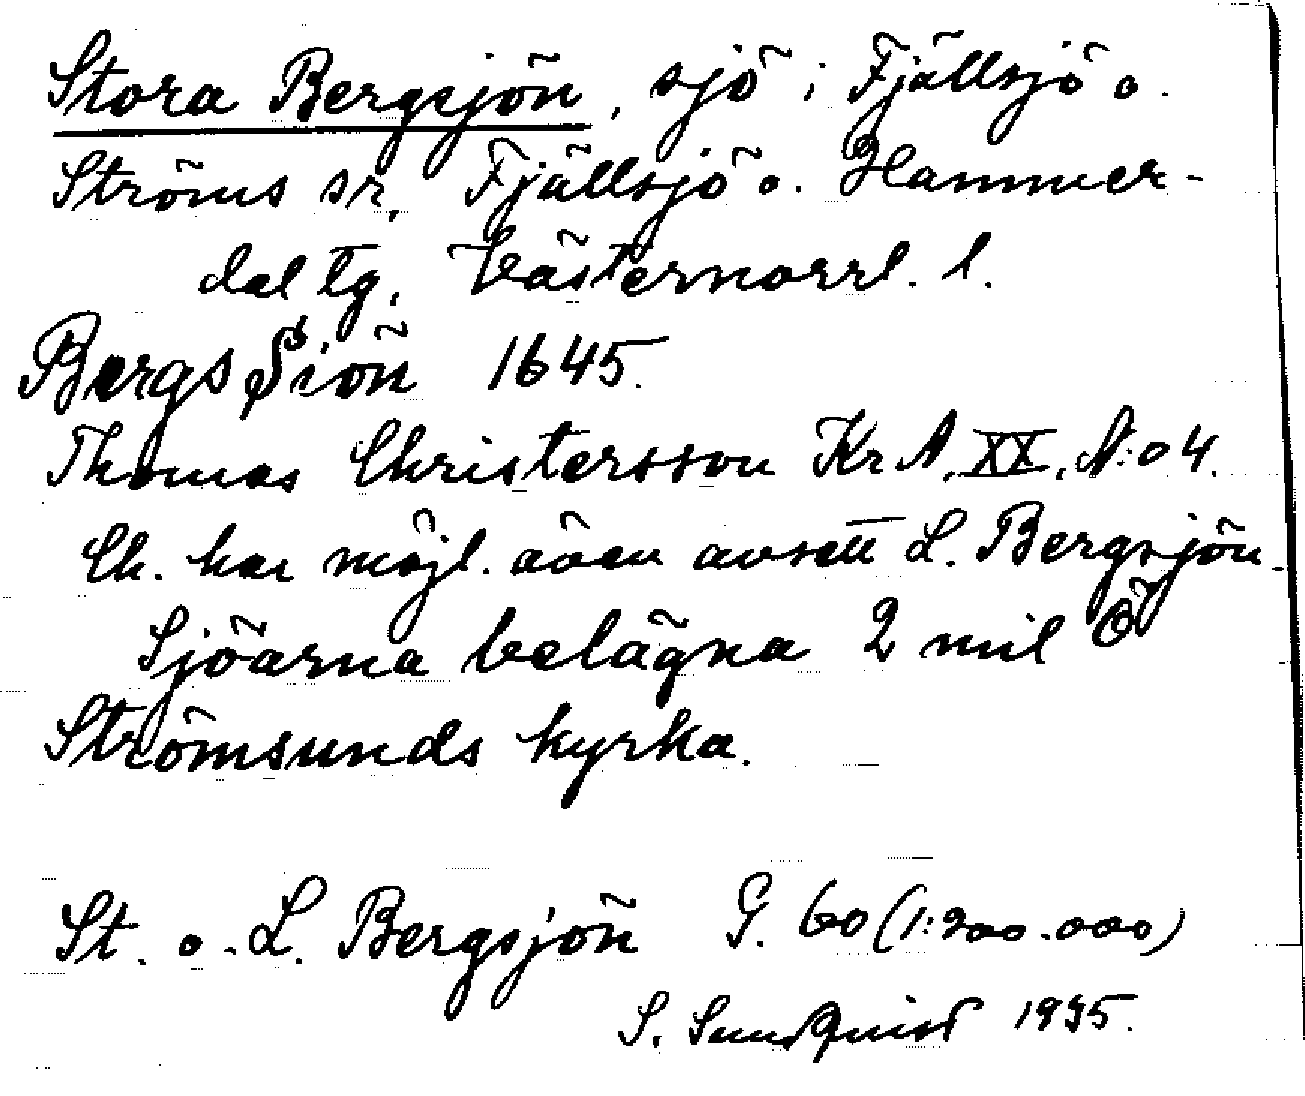 Stora Bergsjön, sjö i Fjällsjö o.
Ströms sr, Fjällsjö o. Hammer-
dal tg, Västernorrl. l.
Bergs Siön 1645.
Thomas Christersson Kr A, XX, N:o 4.
Ch. har möjl. även avsett L. Bergsjön.
Sjöarna belägna 2 mil Ö
Strömsunds kyrka.
St. o. L. Bergsjön G. 60 (1:200.000)
S. Sundquist 1935.